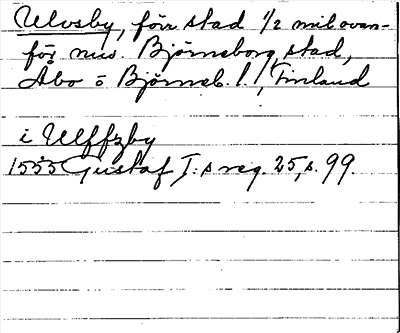 Ulvsby, förr stad 1/2 mil ovan-
för nuv. Björneborg stad,
Åbo o Björneb. l., Finland
i Ulffzby
1555 Gustaf I:s reg. 25, s. 99.